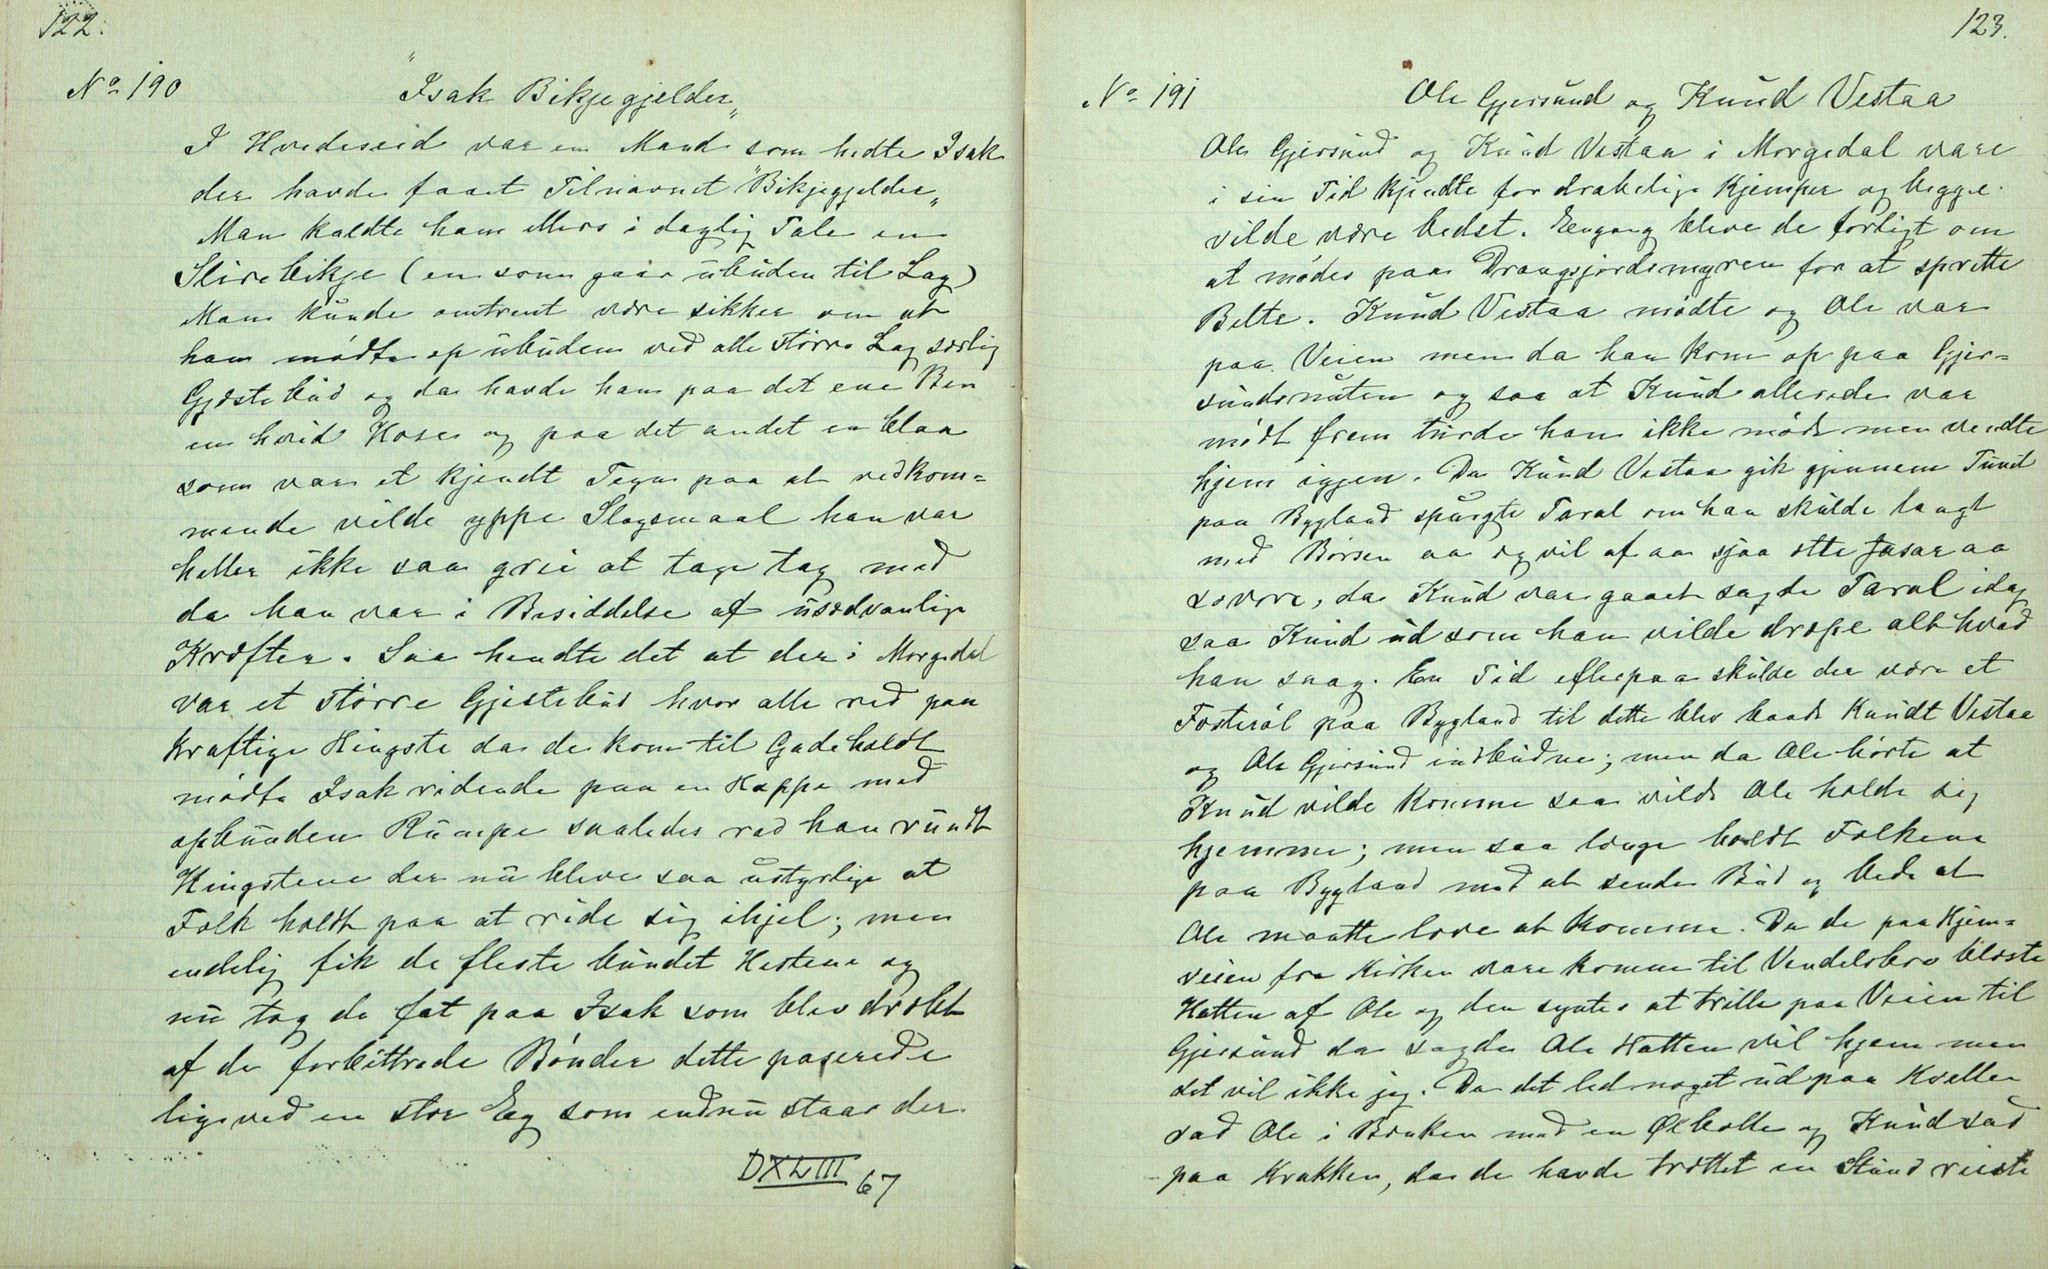 122.
No 190
"Isak Bikjegjelder"
I Hvideseid var en Mand som hedte Isak
der havde faaet Tilnavnet "Bikjegjelder"
Man kaldte ham ellers i daglig Tale en
Slirebikje (en som gaar ubuden til Lag)
Man kunde omtrent være sikker om at
han mødte op ubuden ved alle større Lag særlig
Gjæstebud og da havde han paa det ene Ben
en hvid Hose og paa det andet en blaa
som var et kjendt Tegn paa at vedkom=
mende vilde yppe Slagsmaal han var
heller ikke saa grei at tage tag med
da han var i Besiddelse af usædvanlige
Kræfter. Saa hendte det at der i Morgedal
var et større Gjestebud hvor alle red paa
kraftige Hingste da de kom til Gadeholdt
mødte Isak ridende paa en Hoppe med
opbunden Rumpe saaledes red han rundt
Hingstene der nu bleve saa ustyrlige at
Folk holdt paa at ride sig ihjel; men
endelig fik de fleste bundet Hestene og
nu tog de fat paa Isak som blev dræbt
af de forbittrede Bønder dette paserede
lige ved en stor Eg som endnu staar der.
DXLIII 67
123.
No 191
Ole Gjersund og Knud Vestaa
Ole Gjersund og Knud Vestaa i Morgedal vare
i sin Tid kjendte for drabelige Kjemper og begge
vilde være bedst. Engang bleve de forligt om
at mødes paa Draugsjordsmyren for at sprette
Belte. Knud Vestaa mødte og Ole var
paa Veien men da han kom op paa Gjer=
sundsnuten og saa at Knud allerede var
mødt frem turde han ikke møde men vendte
hjem igjen. Da Knud Vestaa gik gjennem Tunet
paa Bygland spurgte Taral om han skulde langt
med Børsen aa eg vil af aa sjaa ette Jasar aa
sovore, da Knud var gaaet sagde Taral idag
saa Knud ud som han vilde dræpe alt hvad
han saag. En Tid efterpaa skulde der være et
Fosterøl paa Bygland til dette blev baade Kundt Vestaa
og Ole Gjersund indbudne; men da Ole hørte at
Knud vilde komme saa vilde Ole holde sig
hjemme; men saa længe holdt Folkene
paa Bygland med at sende Bud og bede at
Ole maatte love at komme. Da de paa Hjem=
veien fra Kirken vare komne til Vendelsbro blæste
Hatten af Ole og den syntes at trille paa Veien til
Gjersund da sagde Ole Hatten vil hjem men
det vil ikke jeg. Da det led noget ud paa Kvellen
sad Ole i Bænken med en Ølbolle og Knud sad
paa Krakken, da de havde trættet en Stund reiste